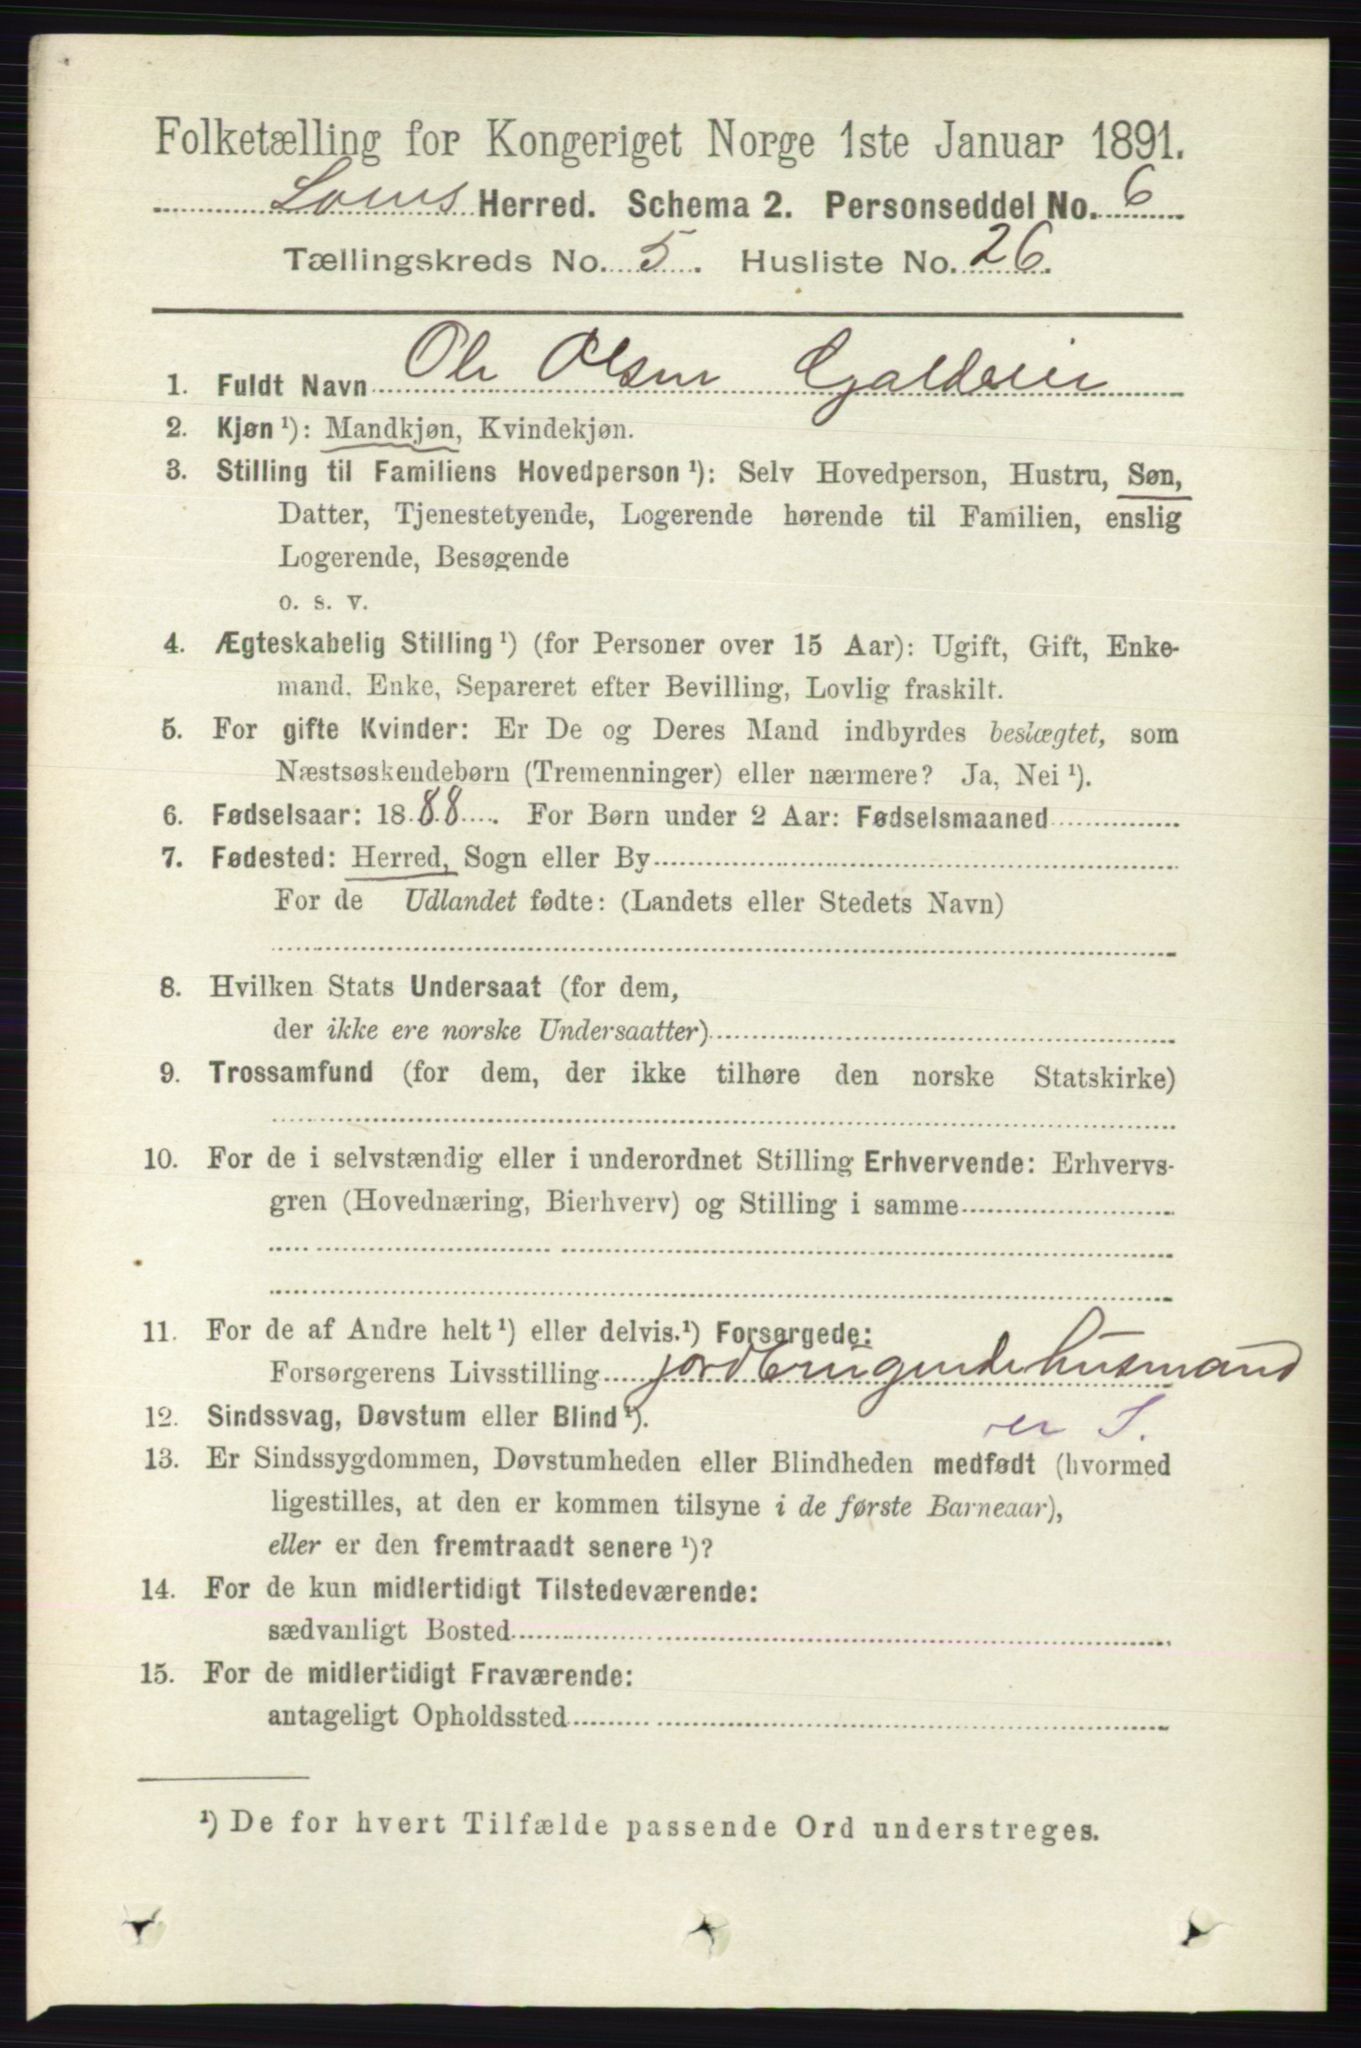 Folketælling for Kongeriget Norge 1ste Januar 1891.
Loms Herred. Schema 2. Personseddel No. 6
Tællingskreds No. 5. Husliste No. 26.
1. Fuldt Navn Ole Olsen
2. Kjøn ¹): Mandkjøn, Kvindekjøn.
3. Stilling til Familiens Hovedperson ¹): Selv Hovedperson, Hustru, Søn,
Datter, Tjenestetyende, Logerende hørende til Familien, enslig
Logerende, Besøgende
o. s. v.
4. Ægteskabelig Stilling ¹) (for Personer over 15 Aar): Ugift, Gift, Enke-
mand, Enke, Separeret efter Bevilling, Lovlig fraskilt.
5. For gifte Kvinder: Er De og Deres Mand indbyrdes beslægtet, som
Næstsøskendebørn (Tremenninger) eller nærmere? Ja, Nei ¹).
6. Fødselsaar: 1888. For Børn under 2 Aar: Fødselsmaaned
7. Fødested: Herred, Sogn eller By
For de Udlandet fødte: (Landets eller Stedets Navn)
8. Hvilken Stats Undersaat (for dem,
der ikke ere norske Undersaatter)
9. Trossamfund (for dem, der ikke tilhøre den norske Statskirke)
10. For de i selvstændig eller i underordnet Stilling Erhvervende: Erhvervs-
gren (Hovednæring, Bierhverv) og Stilling i samme
11. For de af Andre helt ¹) eller delvis.¹) Forsørgede:
Forsørgerens Livsstilling jordbrugende husmand
er S.
12. Sindssvag, Døvstum eller Blind ¹).
13. Er Sindssygdommen, Døvstumheden eller Blindheden medfødt (hvormed
ligestilles, at den er kommen tilsyne i de første Barneaar),
eller er den fremtraadt senere ¹)?
14. For de kun midlertidigt Tilstedeværende:
sædvanligt Bosted
15. For de midlertidigt Fraværende:
antageligt Opholdssted
¹) De for hvert Tilfælde passende Ord understreges.